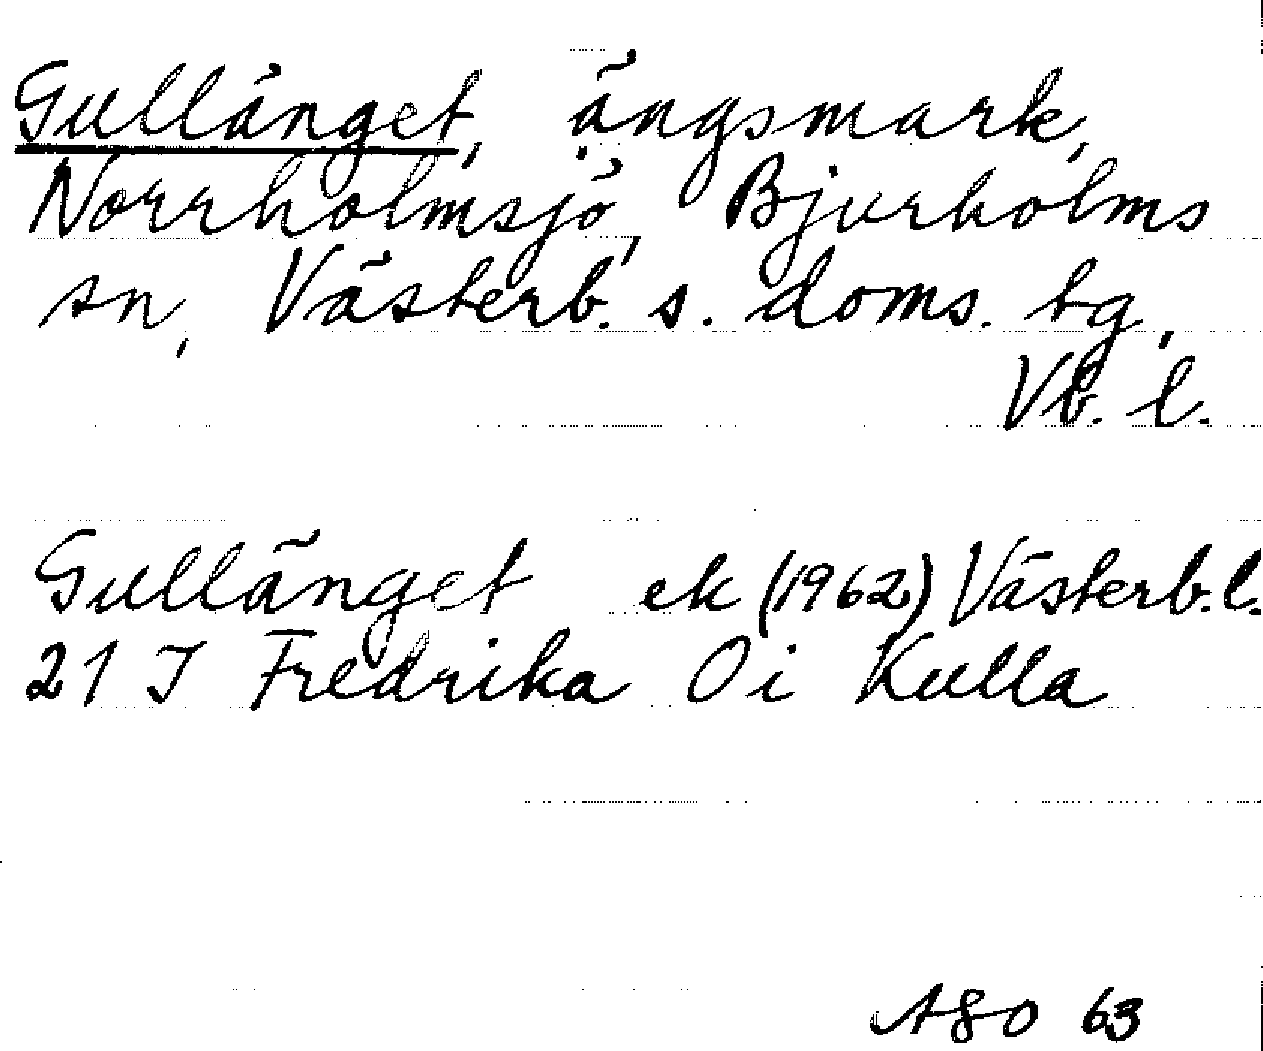 Gullänget, ängsmark,
Norrholmsjö, Bjurholms
sn, Västerb. s. doms. tg,
Vb. l.
Gullänget ek (1962) Västerb. l.
21 J Fredrika 0 i Kulla
ASO 63